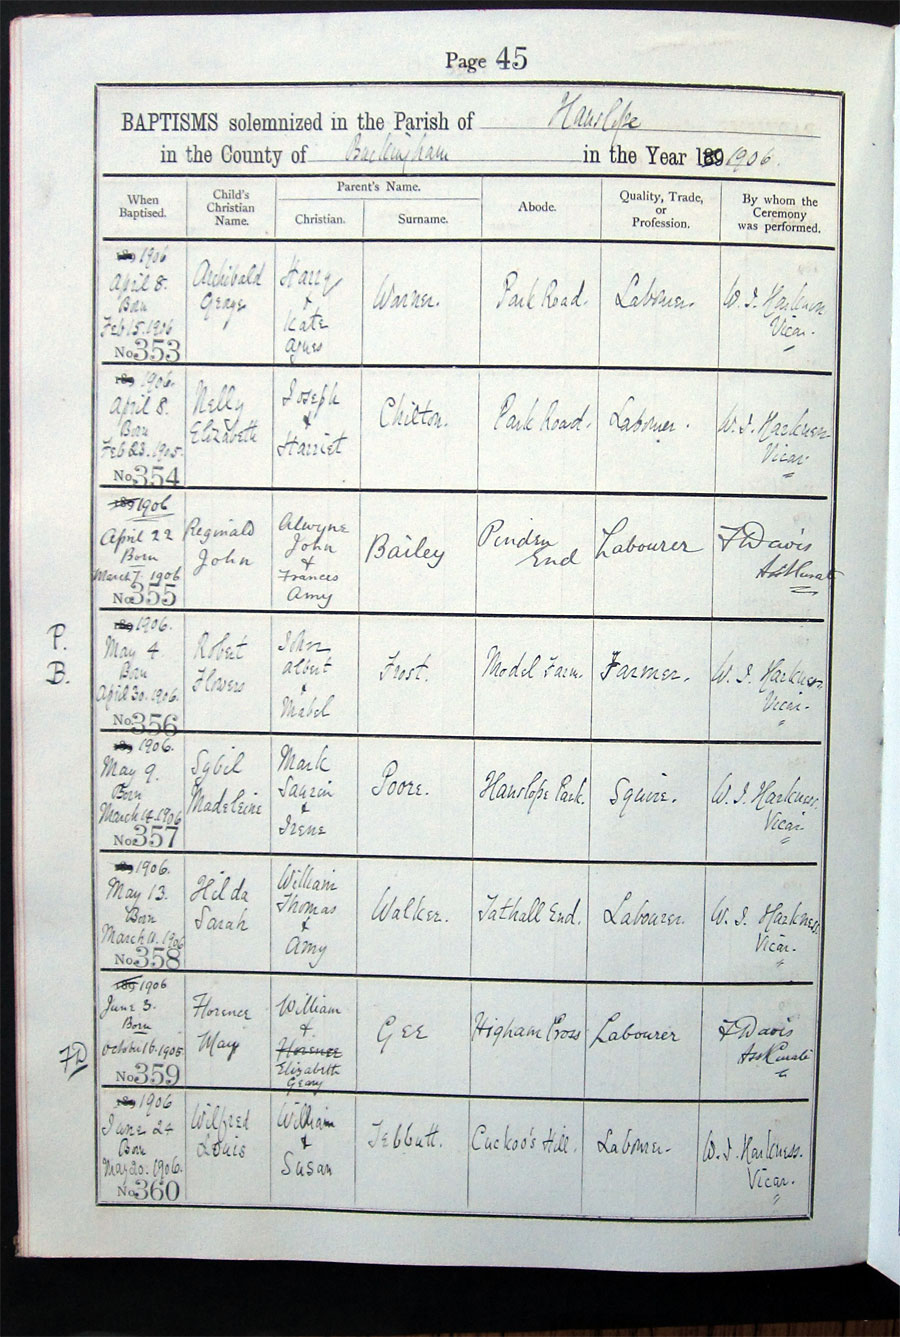 Page 45
BAPTISMS solemnized in the Parish of Hanslope
in the County of Buckingham in the Year 189 1906.
When Baptised. Child's Christian Name. Parent's Name. Christian. Surname. Abode. Quality, Trade, or Profession. By whom the Ceremony was performed.
189 1906
April 8.
Born
Feb 15. 1906
No. 353
Archibald
George
Harry
+
Kate
Agnes
Warner.
Park Road.
Labourer.
W. J. Harkness
Vicar.
189 1906.
April 8.
Born
Feb 23. 1905.
No. 354
Nelly
Elizabeth
Joseph
+
Harriet
Chilton.
Park Road.
Labourer.
W. J. Harkness
Vicar.
189 1906
April 22
Born
March 7. 1906
No. 355
Reginald
John
Alwyne
John
+
Frances
Amy
Bailey
Pinden
End
Labourer
F Davis
Asst Curate
P.
B.
189 1906.
May 4.
Born
April 30. 1906.
No. 356
Robert
Flowers
John
Albert
+
Mabel
Frost.
Model Farm.
Farmer.
W. J. Harkness
Vicar.
189 1906.
May 9.
Born
March 14. 1906
No. 357
Sybil
Madeleine
Mark
Saurin
+
Irene
Poore.
Hanslope Park.
Squire.
W. J. Harkness.
Vicar
189 1906.
May 13.
Born
March 11. 1906
No. 358
Hilda
Sarah
William
Thomas
+
Amy
Walker.
Tathall End.
Labourer.
W. J. Harkness.
Vicar.
FD
189 1906
June 3.
Born
October 16. 1905
No. 359
Florence
May
William
+
Florence
Elizabeth
Geary
GEE
Higham Cross
Labourer
F Davis
Asst Curate
189 1906
June 24
Born
May 20. 1906.
No. 360
Wilfred
Louis
William
+
Susan
Tebbutt.
Cuckoo's Hill.
Labourer.
W. J. Harkness.
Vicar.